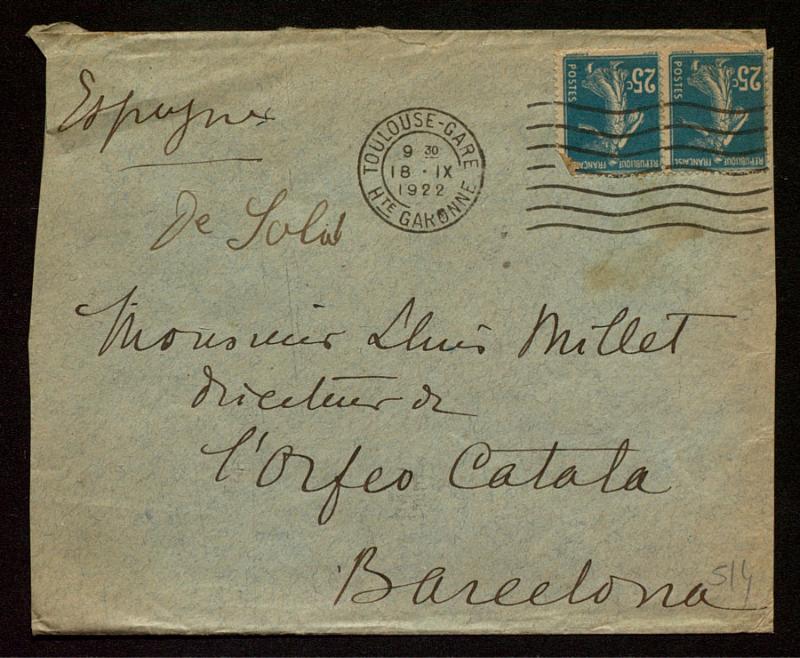 Espagne
25c
25c
POSTES
POSTES
REPUBLIQUE FRANÇAISE
REPUBLIQUE FRANÇAISE
TOULOUSE-GARE
9 30
18 · IX
1922
HTE GARONNE
De Solà
Monsieur Lluis Millet
directeur de
l'Orfeo Catala
Barcelona
514